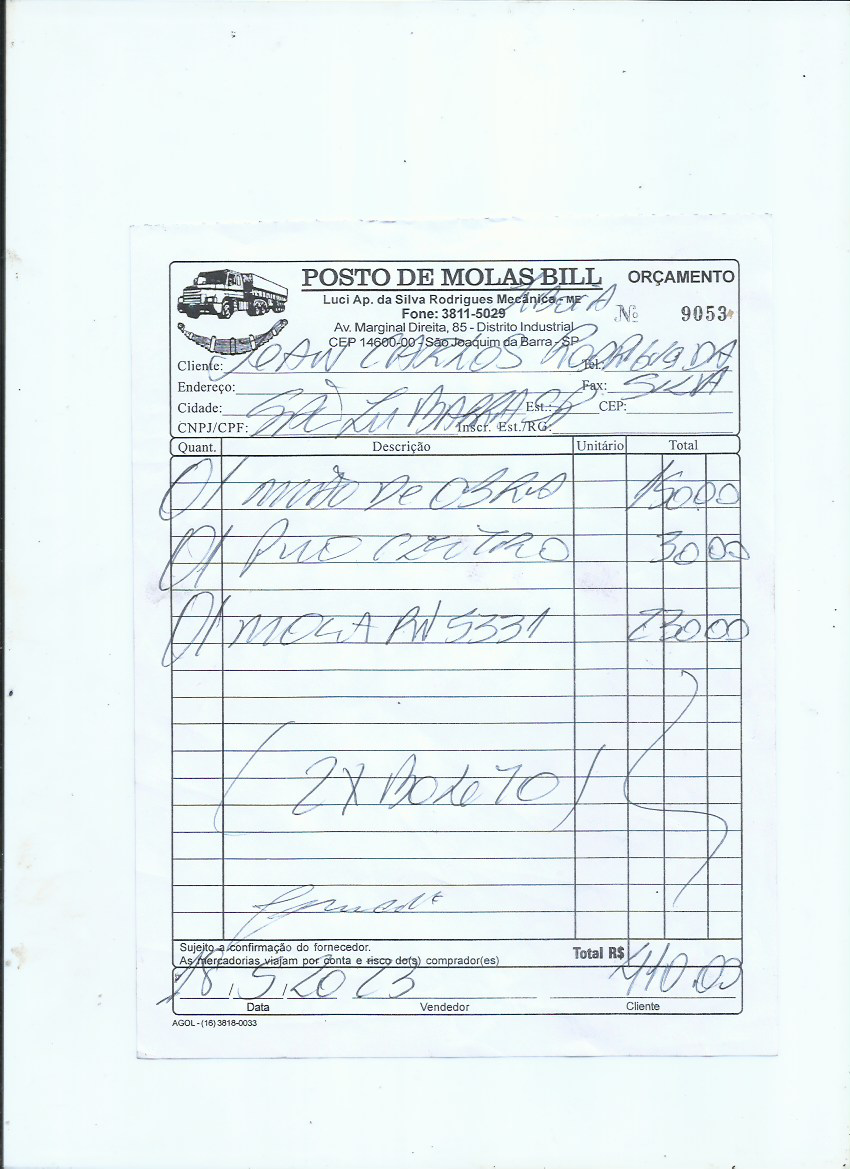 POSTO DE MOLAS BILL ORÇAMENTO
Luci Ap. da Silva Rodrigues Mecânica - ME
Fone: 3811-5029 Nº 9053
Av. Marginal Direita, 85 - Distrito Industrial
CEP 14600-00 - São Joaquim da Barra - SP
Cliente: JEAN CARLOS RODRIGUES DA Tel.:
Endereço: Fax: SILVA
Cidade: Est.: SP CEP:
CNPJ/CPF: Inscr. Est./RG:
Quant. Descrição Unitário Total
01 MÃO DE OBRA 150 00
01 PINO CENTRO 30 00
01 MOLA PN 5331 230 00
(2X BOLETO)
Sujeito a confirmação do fornecedor.
As mercadorias viajam por conta e risco do(s) comprador(es)
Total R$ 410.00
18.5.2023
Data Vendedor Cliente
AGOL - (16) 3818-0033